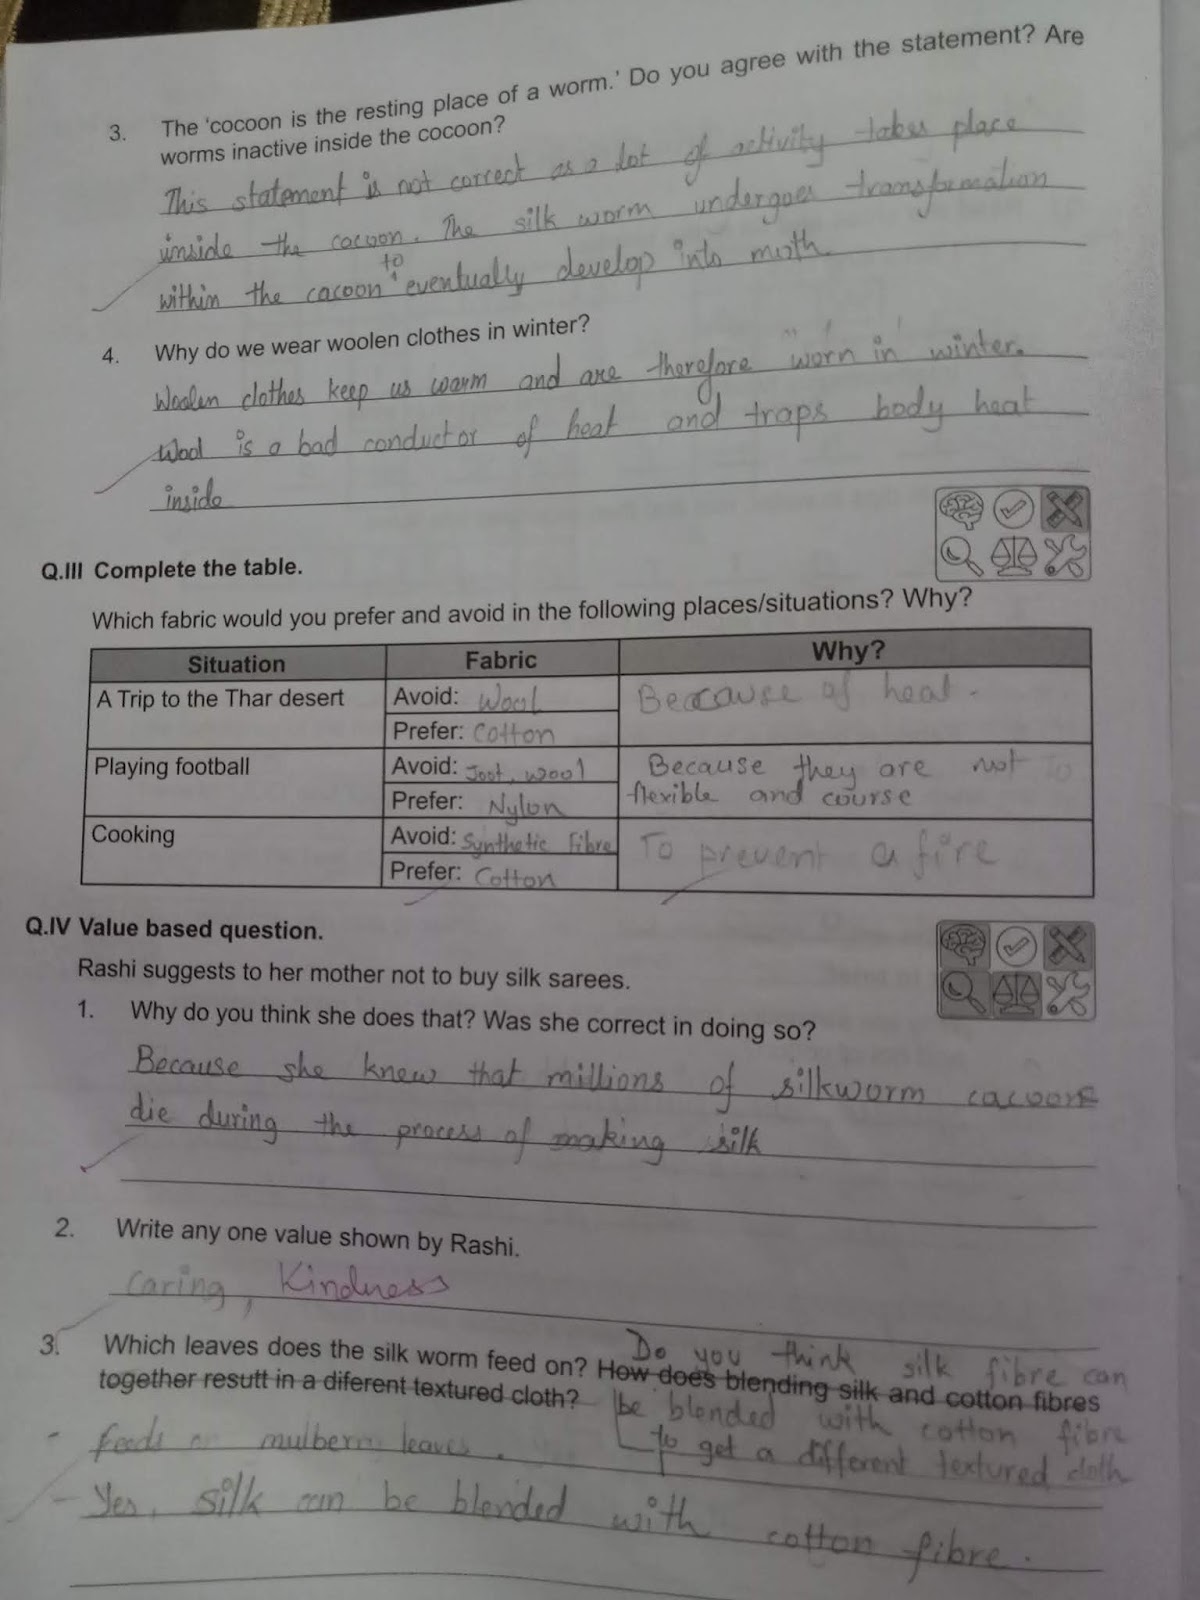 3. The 'cocoon is the resting place of a worm.' Do you agree with the statement? Are
worms inactive inside the cocoon?
This statement is not correct as a lot of activity takes place
inside the cocoon. The silk worm undergoes transformation
to
within the cacoon eventually develop into moth.
4. Why do we wear woolen clothes in winter?
Woolen clothes keep us warm and are therefore worn in winter.
Wool is a bad conductor of heat and traps body heat
inside
Q.III Complete the table.
Which fabric would you prefer and avoid in the following places/situations? Why?
Situation Fabric Why?
A Trip to the Thar desert Avoid: Wool Because of heat.
Prefer: Cotton
Playing football Avoid: Joot, wool Because they are not
Prefer: Nylon flexible and course
Cooking Avoid: Synthetic fibre To prevent a fire
Prefer: Cotton
Q.IV Value based question.
Rashi suggests to her mother not to buy silk sarees.
1. Why do you think she does that? Was she correct in doing so?
Because she knew that millions of silkworm cacoons
die during the process of making silk
2. Write any one value shown by Rashi.
Caring, Kindness
3. Which leaves does the silk worm feed on? How does blending silk and cotton fibres
together resutt in a diferent textured cloth?
Do you think silk fibre can
be blended with cotton fibre
to get a different textured cloth
- feeds on mulberry leaves.
- Yes, silk can be blended with cotton fibre.